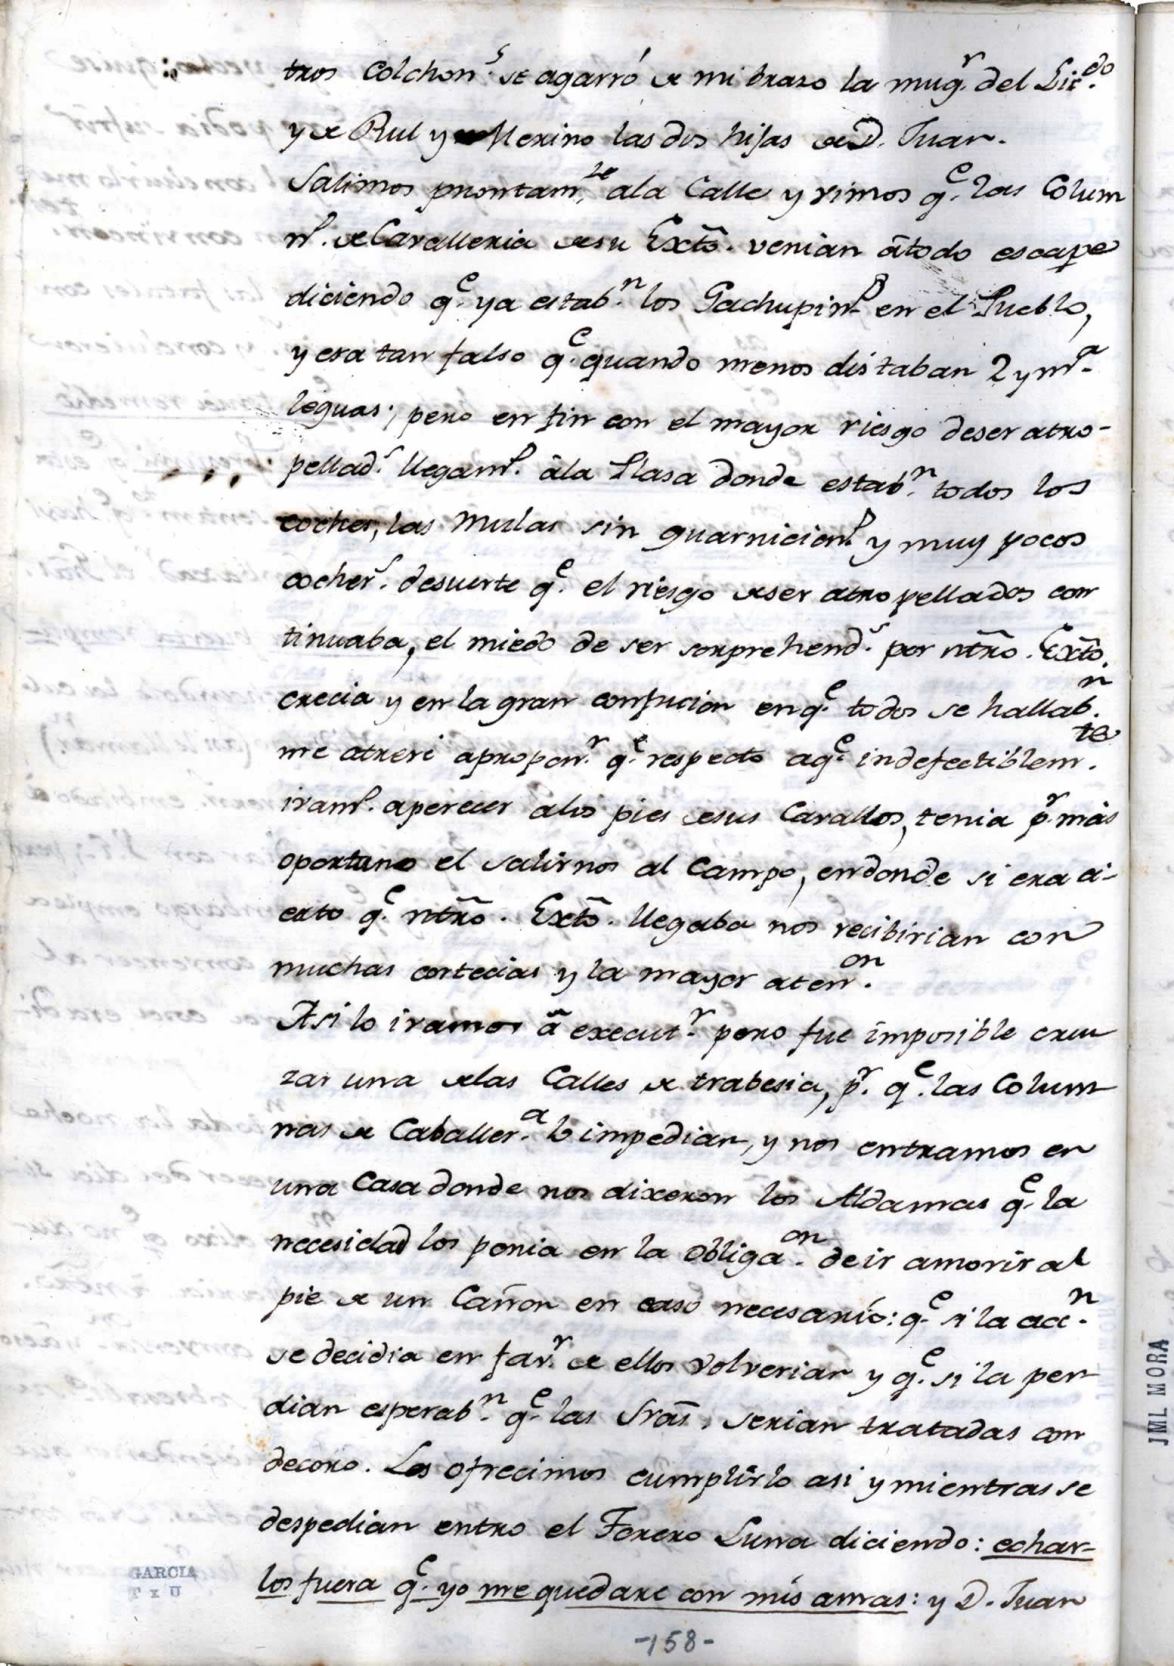 tros Colchon.s se agarró de mi brazo la mug.r del Lic.do
y de Rul y Merino las dos hijas de D. Juan.
Salimos prontam.te ala Calle y vimos q.e las Colum
n.s de Cavalleria de su Exto. venian átodo escape
diciendo q.e ya estab.n los Gachupin.s en el Pueblo,
y era tan falso q.e quando menos distaban 2 y m.a
leguas; pero en fin con el mayor riesgo deser atro-
pellad.s llegam.s ála Plasa donde estab.n todos los
coches, las Mulas sin guarnicion.s y muy pocos
cocher.s desuerte q.e el riesgo de ser atropellados con
tinuaba, el miedo de ser sorprehend.s por ntro. Exto.
crecia y en la gran confucion en q.e todos se hallab.n
me atreví apropon.r q.e respecto aq.e indefectiblem.te
ivam.s aperecer alos pies de sus Cavallos, tenia p.r más
oportuno el salirnos al Campo, endonde si era ci-
erto q.e ntro. Exto. llegaba nos recibirian con
muchas cortecias y la mayor aten.on
Asi lo ivamos á executr pero fue imposible cru
zar una delas Calles de trabesia, p.r q.e las Colum
nas de Caballer.a lo impedian, y nos entramos en
una Casa donde nos dixeron los Aldamas q.e la
necesidad los ponia en la obliga.on de ir amorir al
pie de un Cañon en caso necesario: q.e si la acc.n
se decidia en fav.r de ellos volverian y q.e si la per
dian esperab.n q.e las Sras. serian tratadas con
decoro. Los ofrecimos cumplirlo asi y mientras se
despedian entro el Torero Luna diciendo: echar-
los fuera q.e yo me quedare con mis amas: y D. Juan
-158-
GARCIA
JML MORA